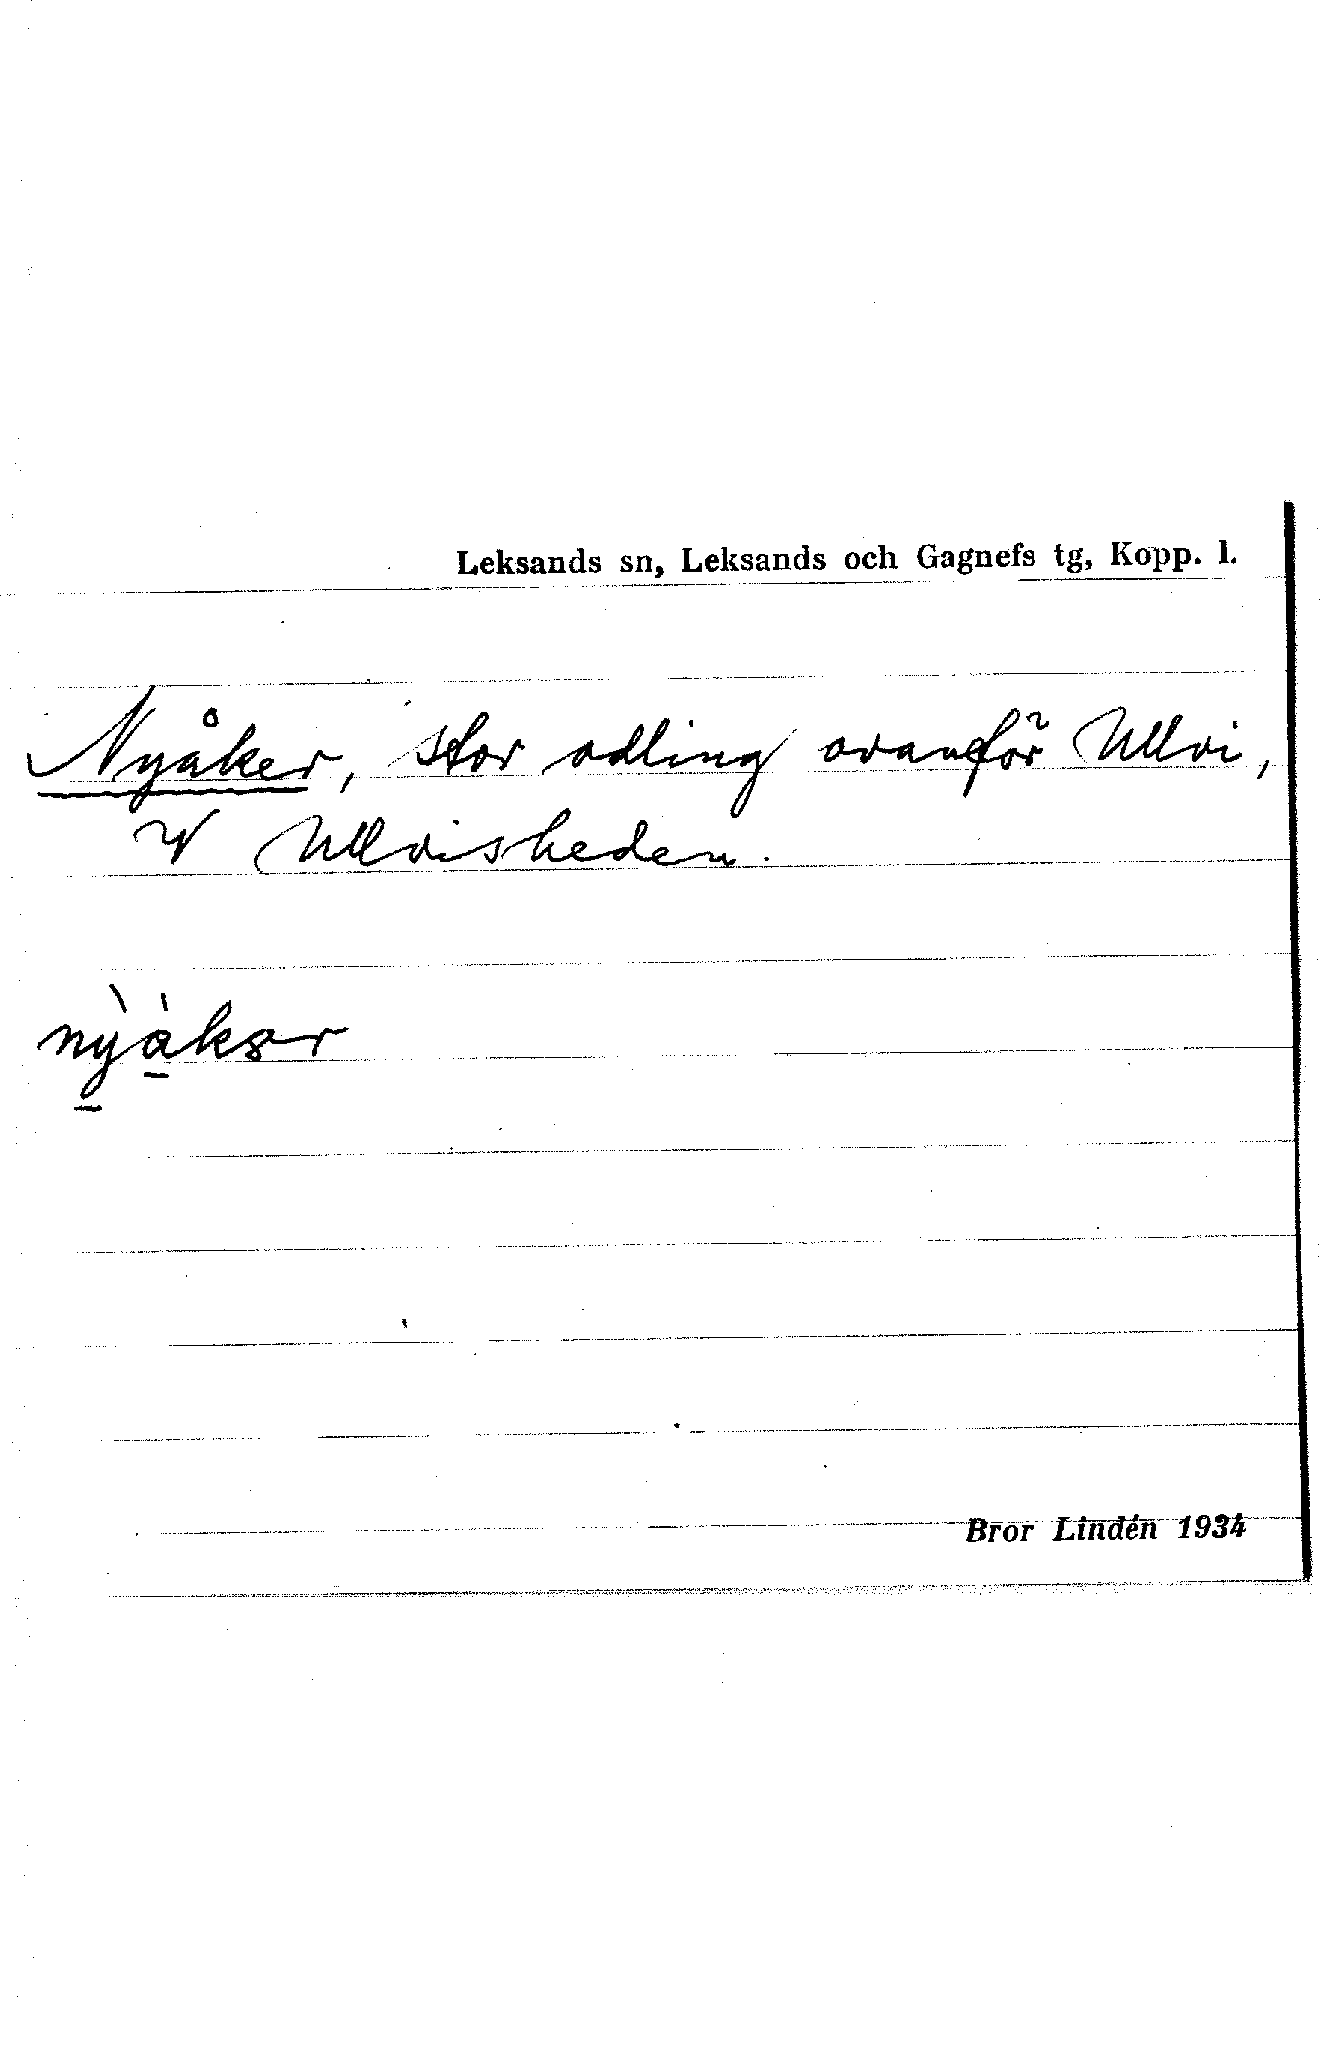 Leksands sn, Leksands och Gagnefs tg, Kopp. l.
Nyåker, stor odling ovanför Ullvi,
V Ullvisheden.
Bror Lindén 1934